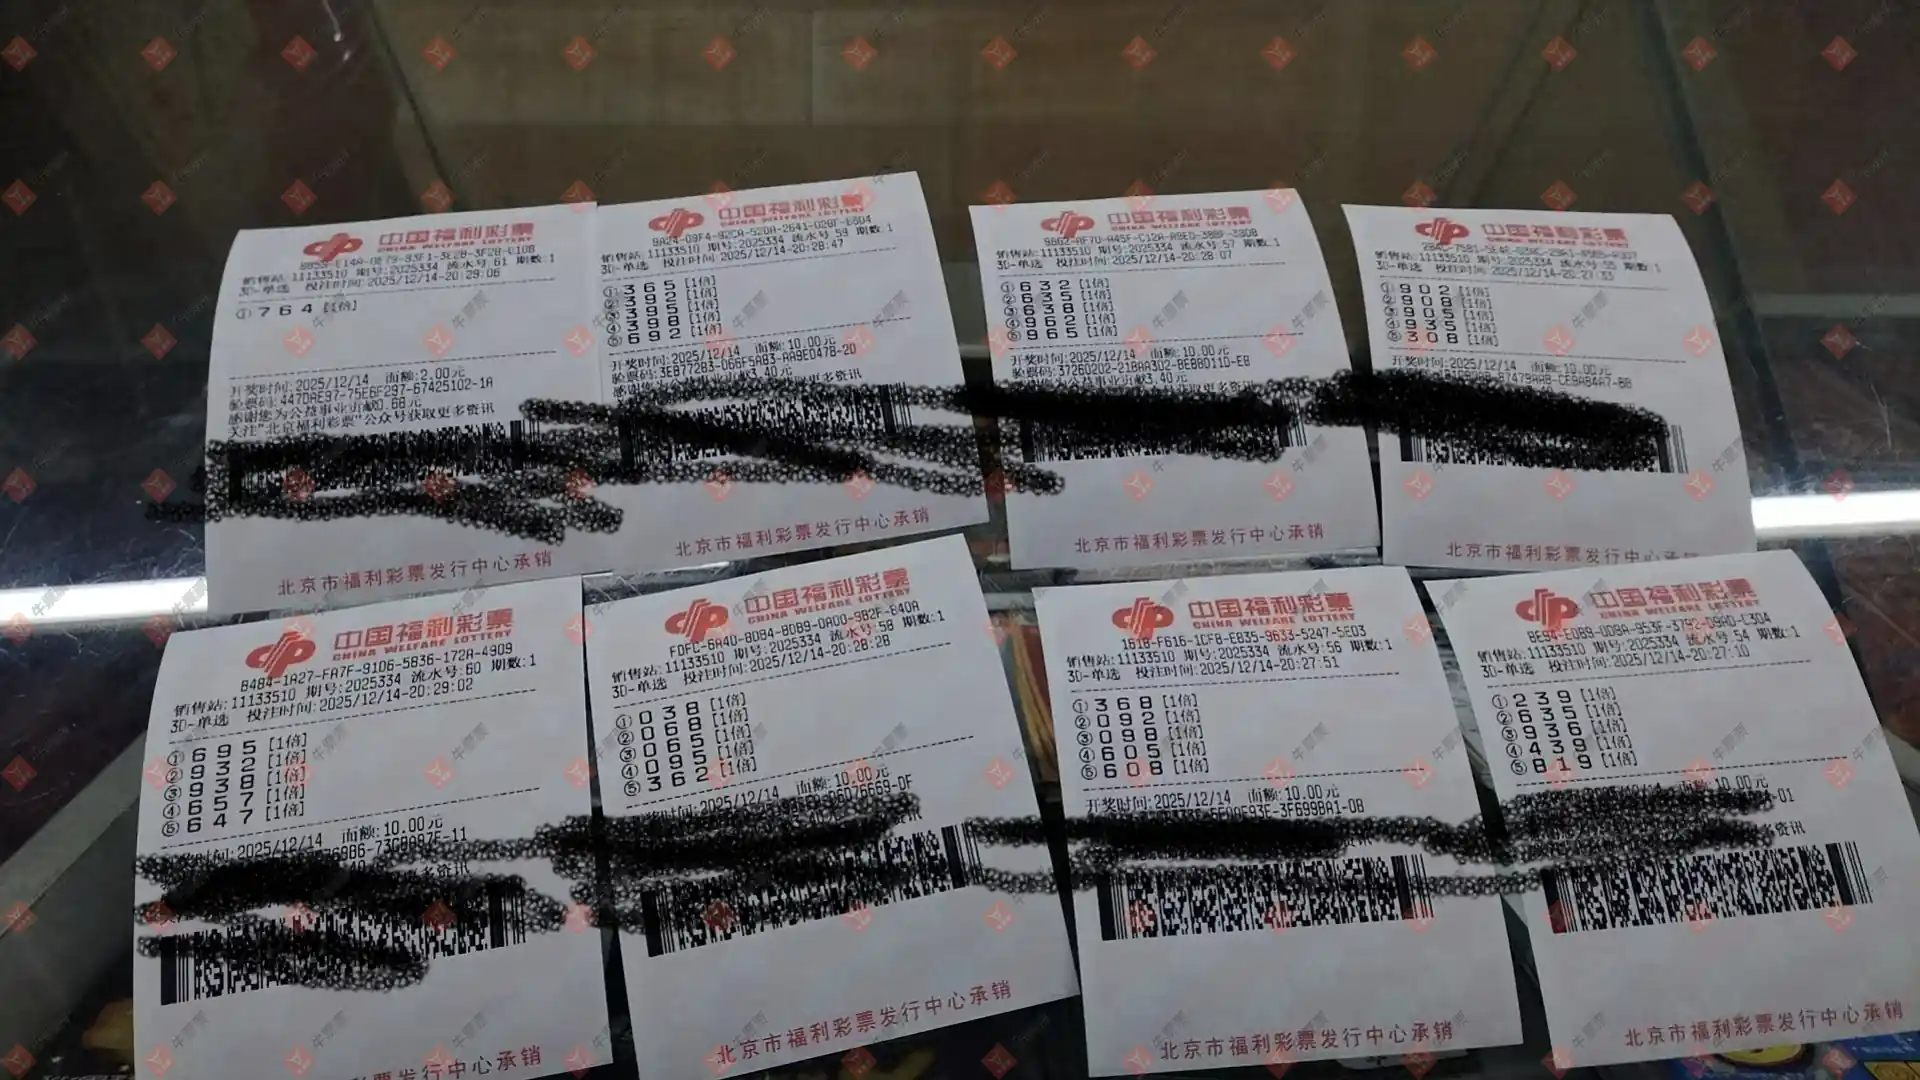 中国福利彩票
CHINA WELFARE LOTTERY
销售站:11133510 期号:2025334 流水号 61 期数:1
3D-单选 投注时间:2025/12/14-20:29:06
① 7 6 4 [1倍]
开奖时间:2025/12/14 面额:2.00元
验票码:447DAE97-75E6F297-67425102-1A
感谢您为公益事业贡献0.68元
关注"北京福利彩票"公众号获取更多资讯
北京市福利彩票发行中心承销
中国福利彩票
CHINA WELFARE LOTTERY
销售站:11133510 期号:2025334 流水号 59 期数:1
3D-单选 投注时间:2025/12/14-20:28:47
① 3 6 5 [1倍]
② 3 9 2 [1倍]
③ 3 9 5 [1倍]
④ 3 9 8 [1倍]
⑤ 6 9 2 [1倍]
开奖时间:2025/12/14 面额:10.00元
验票码:3EB77283-066F5A83-AA9ED47B-2D
感谢您为公益事业贡献3.40元
更多资讯
北京市福利彩票发行中心承销
中国福利彩票
CHINA WELFARE LOTTERY
销售站:11133510 期号:2025334 流水号 57 期数:1
3D-单选 投注时间:2025/12/14-20:28:07
① 6 3 2 [1倍]
② 6 3 5 [1倍]
③ 6 3 8 [1倍]
④ 9 6 2 [1倍]
⑤ 9 6 5 [1倍]
开奖时间:2025/12/14 面额:10.00元
验票码:37260202-21BAA302-BEBBD11D-EB
感谢您为公益事业贡献3.40元
获取更多资讯
北京市福利彩票发行中心承销
中国福利彩票
CHINA WELFARE LOTTERY
销售站:11133510 期号:2025334 流水号 55 期数:1
3D-单选 投注时间:2025/12/14-20:27:33
① 9 0 2 [1倍]
② 9 0 8 [1倍]
③ 9 0 5 [1倍]
④ 9 3 5 [1倍]
⑤ 3 0 8 [1倍]
开奖时间:2025/12/14 面额:10.00元
北京市福利彩票发行中心承销
中国福利彩票
CHINA WELFARE LOTTERY
B4B4-1A27-FA7F-91D6-5B36-172A-4909
销售站:11133510 期号:2025334 流水号 60 期数:1
3D-单选 投注时间:2025/12/14-20:29:02
① 6 9 5 [1倍]
② 9 3 2 [1倍]
③ 9 3 8 [1倍]
④ 6 5 7 [1倍]
⑤ 6 4 7 [1倍]
时间:2025/12/14 面额:10.00元
更多资讯
彩票发行中心承销
中国福利彩票
CHINA WELFARE LOTTERY
FDFC-6A4D-BDB4-BDB9-0A00-9B2F-B40A
销售站:11133510 期号:2025334 流水号 58 期数:1
3D-单选 投注时间:2025/12/14-20:28:28
① 0 3 8 [1倍]
② 0 6 8 [1倍]
③ 0 6 5 [1倍]
④ 0 9 5 [1倍]
⑤ 3 6 2 [1倍]
2025/12/14 面额:10.00元
资讯
北京市福利彩票发行中心承销
中国福利彩票
CHINA WELFARE LOTTERY
161B-F616-1CFB-EB35-9633-5247-5E03
销售站:11133510 期号:2025334 流水号 56 期数:1
3D-单选 投注时间:2025/12/14-20:27:51
① 3 6 8 [1倍]
② 0 9 2 [1倍]
③ 0 9 8 [1倍]
④ 6 0 5 [1倍]
⑤ 6 0 8 [1倍]
开奖时间:2025/12/14 面额:10.00元
北京市福利彩票发行中心承销
中国福利彩票
CHINA WELFARE LOTTERY
销售站:11133510 期号:2025334 流水号 54 期数:1
3D-单选 投注时间:2025/12/14-20:27:10
① 2 3 9 [1倍]
② 6 3 5 [1倍]
③ 9 3 6 [1倍]
④ 4 3 9 [1倍]
⑤ 8 1 9 [1倍]
10.00元
多资讯
北京市福利彩票发行中心承销
牛票票